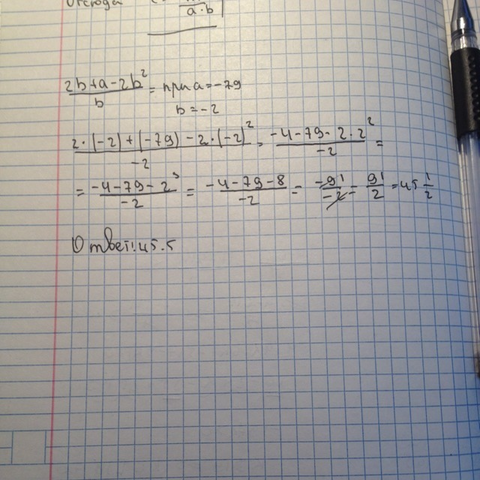 Отсюда
a·b
(2b+a-2b²)/b = при a=-79
b=-2
(2·(-2)+(-79)-2·(-2)²)/(-2) = (-4-79-2·2²)/(-2) =
= (-4-79-2³)/(-2) = (-4-79-8)/(-2) = (-91)/(-2) = 91/2 = 45 1/2
Ответ: 45.5